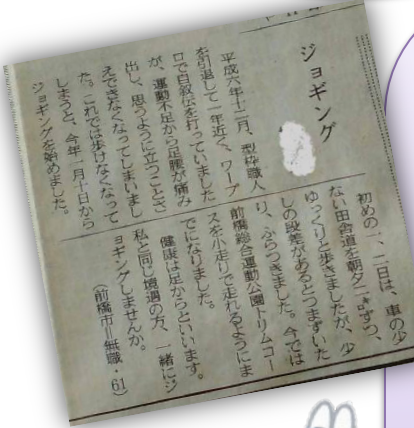 ジョギング
平成六年十二月、型枠職人
を引退して一年近く、ワープ
ロで自叙伝を打っていました
が、運動不足から足腰が痛み
出し、思うように立つことさ
えできなくなってしまいまし
た。これでは歩けなくなって
しまうと、今年一月十日から
ジョギングを始めました。
初めの一、二日は、車の少
ない田舎道を朝夕二㌔ずつ、
ゆっくりと歩きましたが、少
しの段差があるとつまずいた
り、ふらつきました。今では
前橋総合運動公園トリムコー
スを小走りで走れるようにま
でになりました。
健康は足からといいます。
私と同じ境遇の方、一緒にジ
ョギングしませんか。
(前橋市=無職・61)